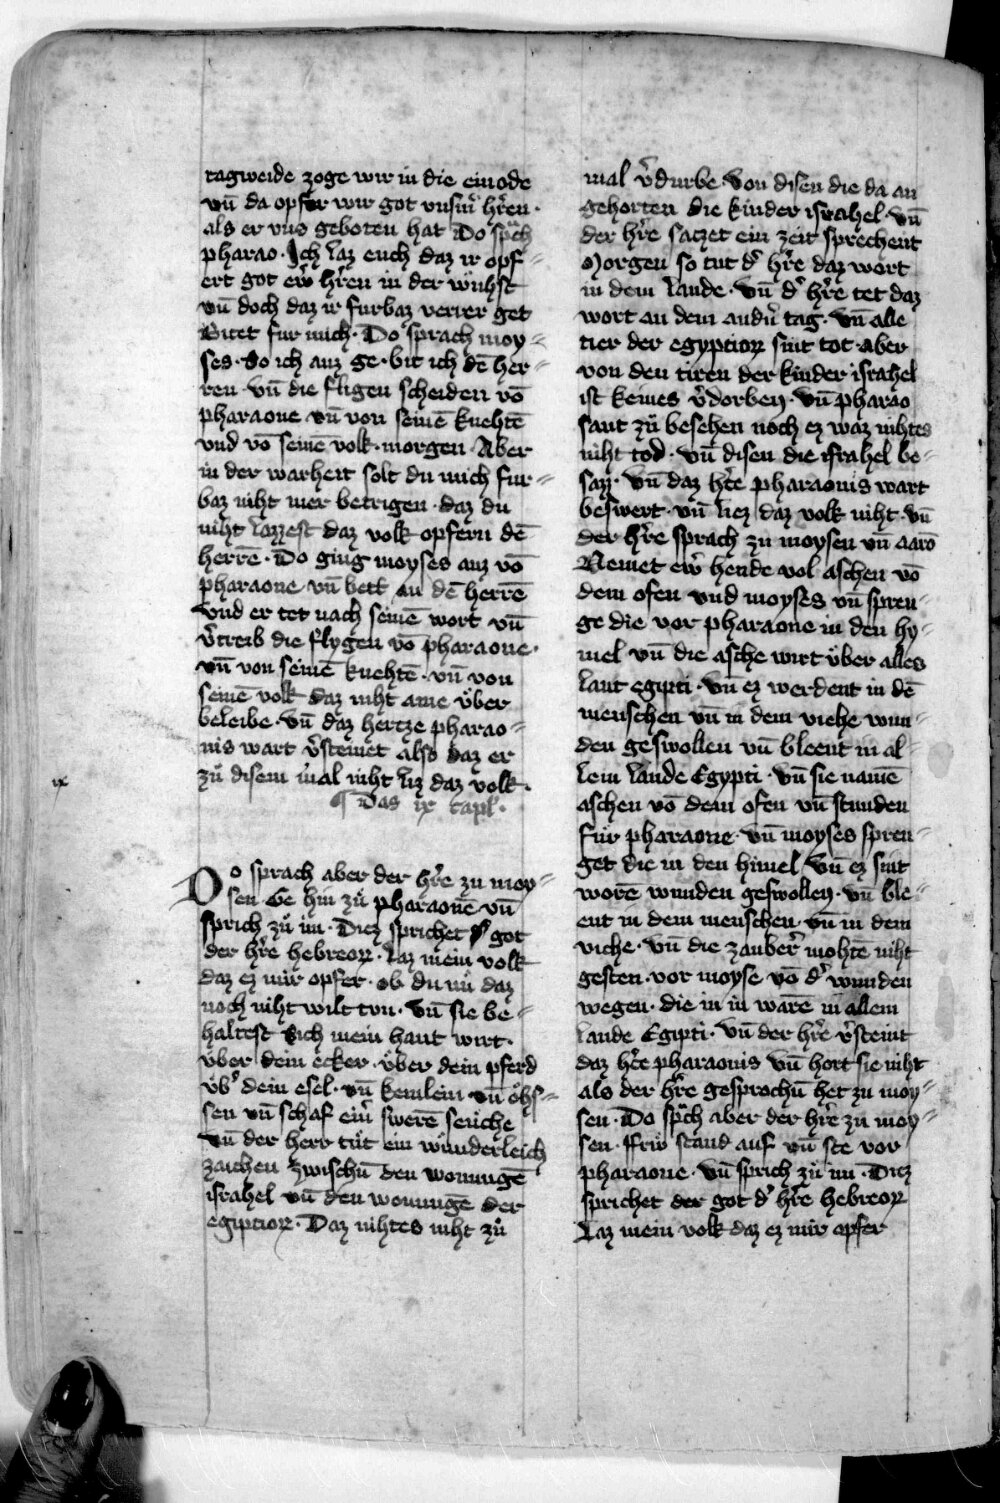 tagweide zoge wir in die einode
vn̄ da opfer wir got vnsm̄ hr̄en ·
als er vns geboten hat Do sp̄ch
pharao · Ich laz euch daz ir opf⸗
ert got ew̄ hr̄en in der wuͤhst
vn̄ doch daz ir furbaz verrer get
Bitet fur mich · Do sprach moy⸗
ses · So ich auz ge · bit ich dē her⸗
ren · vn̄ die fligen scheiden vō
pharaone vn̄ von seinē knehtē
vnd vō seinē volk · morgen · Aber
in der warheit solt du mich fur⸗
baz niht mer betrigen · daz du
niht lazzest daz volk opfern dē
herrē · Do ging moyses auz vō
pharaone vn̄ bett an dē herrē
vnd er tet nach seinē wort vn̄
v̄treib die flygen vō pharaone ·
vn̄ von seinē knehtē · vn̄ von
seinē volk daz niht aine uͤber
beleibe · vn̄ daz hertze pharao⸗
nis wart v̄steinet also daz er
zuͦ disem mal niht liz daz volk ·
ix
¶ Das ix capl̄ ·
Do sprach aber der hr̄e zu moy⸗
sen Ge hin zuͦ pharaonē vn̄
sprich zuͦ im · Diez sprichet d̓ got
der hr̄e hebreoꝝ · Laz mein volk
daz ez mir opfer · ob du nuͦ daz
noch niht wilt tun · vn̄ sie be⸗
haltest Sich mein hant wirt ·
vber dein ecker · uͤber dein pferd
vb̓ dein esel · vn̄ kemlein vn̄ oͤhs⸗
sen vn̄ schaf ein̄ swerē seuche
vn̄ der herr tuͤt ein wuͤnderleich
zaichen zwischn̄ den wonungē
israhel vn̄ den wonungē der
egiptioꝝ · Daz nihtes niht zuͦ
mal v̄durbe von disen die da an
gehorten die kinder israhel · vn̄
der hr̄e satzet ein zeit sprechent
Morgen so tut d̓ hr̄e daz wort
in dem lande · vn̄ d̓ hr̄e tet daz
wort an dem andn̄ tag · vn̄ alle
tier der egyptioꝝ sint tot · aber
von den tiren der kinder israhel
ist keines v̄dorben · vn̄ pharao
sant zuͦ besehen noch ez waz nihtes
niht tod · vn̄ disen die israhel be⸗
sazz · vn̄ daz hr̄tze pharaonis wart
beswert · vn̄ liez daz volk niht · vn̄
der hr̄e sprach zu moysen vn̄ aarō
Nemet ew̄ hende vol aschen vō
dem ofen vnd moyses vn̄ spren⸗
ge die vor pharaone in den hy⸗
mel vn̄ die asche wirt uͤber alles
lant egipti · vn̄ ez werdent in dē
menschen vn̄ in dem viehe wun⸗
den geswollen vn̄ bleent in al⸗
lem lande Egypti · vn̄ sie namē
aschen vō dem ofen vn̄ stunden
fuͤr pharaone · vn̄ moyses spren⸗
get die in den himel vn̄ ez sint
worē wunden geswollen · vn̄ ble⸗
ent in dem menschen · vn̄ in dem
viche · vn̄ die zauber̄ mohtē niht
gesten · vor moyse vō d̓ wunden
wegen · die in in warē in allem
lande Egipti · vn̄ der hr̄e v̄steint
daz hr̄tze pharaonis vn̄ hort sie niht
als der hr̄e gesprochn̄ het zu moy⸗
sen · Do sp̄ch aber der hr̄e zu moy⸗
sen · ffruͤ stand auf vn̄ ste vor
pharaone · vn̄ sprich zuͦ im · Diez
sprichet der got d̓ hr̄e hebreoꝝ
Laz mein volk daz ez mir opfer